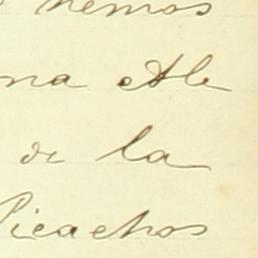 hemos
na Ale
de la
Picachos